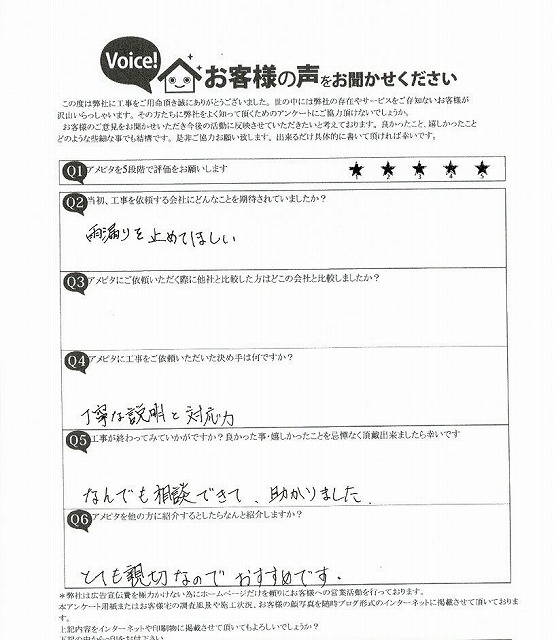 Voice!
お客様の声をお聞かせください
この度は弊社に工事をご用命頂き誠にありがとうございました。世の中には弊社の存在やサービスをご存知ないお客様が
沢山いらっしゃいます。その方たちに弊社をよく知って頂くためのアンケートにご協力頂けないでしょうか。
お客様のご意見をお聞かせいただき今後の活動に反映させていただきたいと考えております。良かったこと、嬉しかったこと
どのような些細な事でも結構です。是非ご協力お願い致します。出来るだけ具体的に書いて頂ければ幸いです。
Q1 アメピタを5段階で評価をお願いします
1 2 3 4 5
Q2 当初、工事を依頼する会社にどんなことを期待されていましたか？
雨漏りを止めてほしい
Q3 アメピタにご依頼いただく際に他社と比較した方はどこの会社と比較しましたか？
Q4 アメピタに工事をご依頼いただいた決め手は何ですか？
丁寧な説明と対応力
Q5 工事が終わってみていかがですか？良かった事・嬉しかったことを忌憚なく頂戴出来ましたら幸いです
なんでも相談できて、助かりました。
Q6 アメピタを他の方に紹介するとしたらなんと紹介しますか？
とても親切なのでおすすめです。
＊弊社は広告宣伝費を極力かけない為にホームページだけを頼りにお客様への営業活動を行っております。
本アンケート用紙またはお客様宅の調査風景や施工状況、お客様の顔写真を随時ブログ形式のインターネットに掲載させて頂いておりま
す。
上記内容をインターネットや印刷物に掲載させて頂いてもよろしいでしょうか？